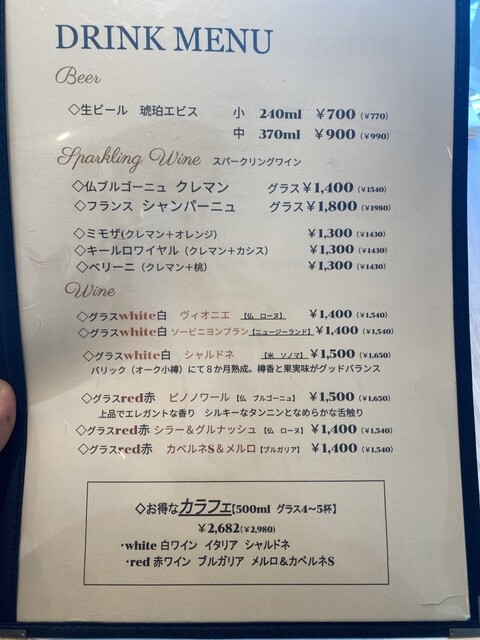 DRINK MENU
Beer
◇生ビール 琥珀エビス 小 240ml ¥700 (¥770)
中 370ml ¥900 (¥990)
Sparkling Wine スパークリングワイン
◇仏ブルゴーニュ クレマン グラス¥1,400 (¥1540)
◇フランス シャンパーニュ グラス¥1,800 (¥1980)
◇ミモザ(クレマン+オレンジ) ¥1,300 (¥1430)
◇キールロワイヤル(クレマン+カシス) ¥1,300 (¥1430)
◇ベリーニ(クレマン+桃) ¥1,300 (¥1430)
Wine
◇グラスwhite白 ヴィオニエ 【仏 ローヌ】 ¥1,400 (¥1,540)
◇グラスwhite白 ソービニヨンブラン【ニュージーランド】¥1,400 (¥1,540)
◇グラスwhite白 シャルドネ 【米 ソノマ】 ¥1,500 (¥1,650)
バリック(オーク小樽)にて8か月熟成。樽香と果実味がグッドバランス
◇グラスred赤 ピノノワール【仏 ブルゴーニュ】 ¥1,500 (¥1,650)
上品でエレガントな香り シルキーなタンニンとなめらかな舌触り
◇グラスred赤 シラー&グルナッシュ【仏 ローヌ】 ¥1,400 (¥1,540)
◇グラスred赤 カベルネS&メルロ【ブルガリア】 ¥1,400 (¥1,540)
◇お得なカラフェ【500ml グラス4~5杯】
¥2,682(¥2,980)
・white 白ワイン イタリア シャルドネ
・red 赤ワイン ブルガリア メルロ&カベルネS